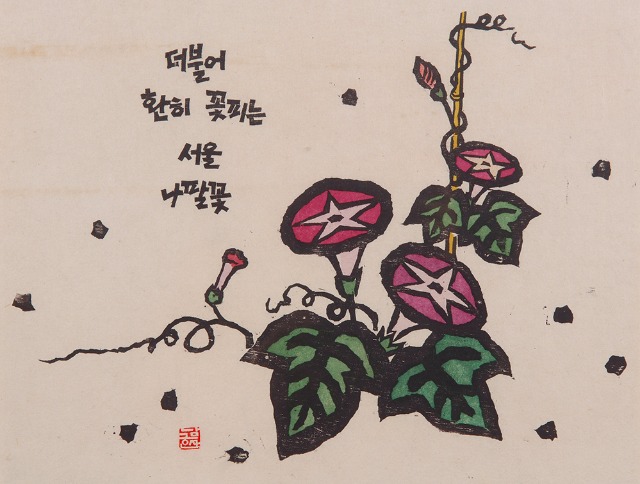 더불어
환히 꽃피는
서울
나팔꽃